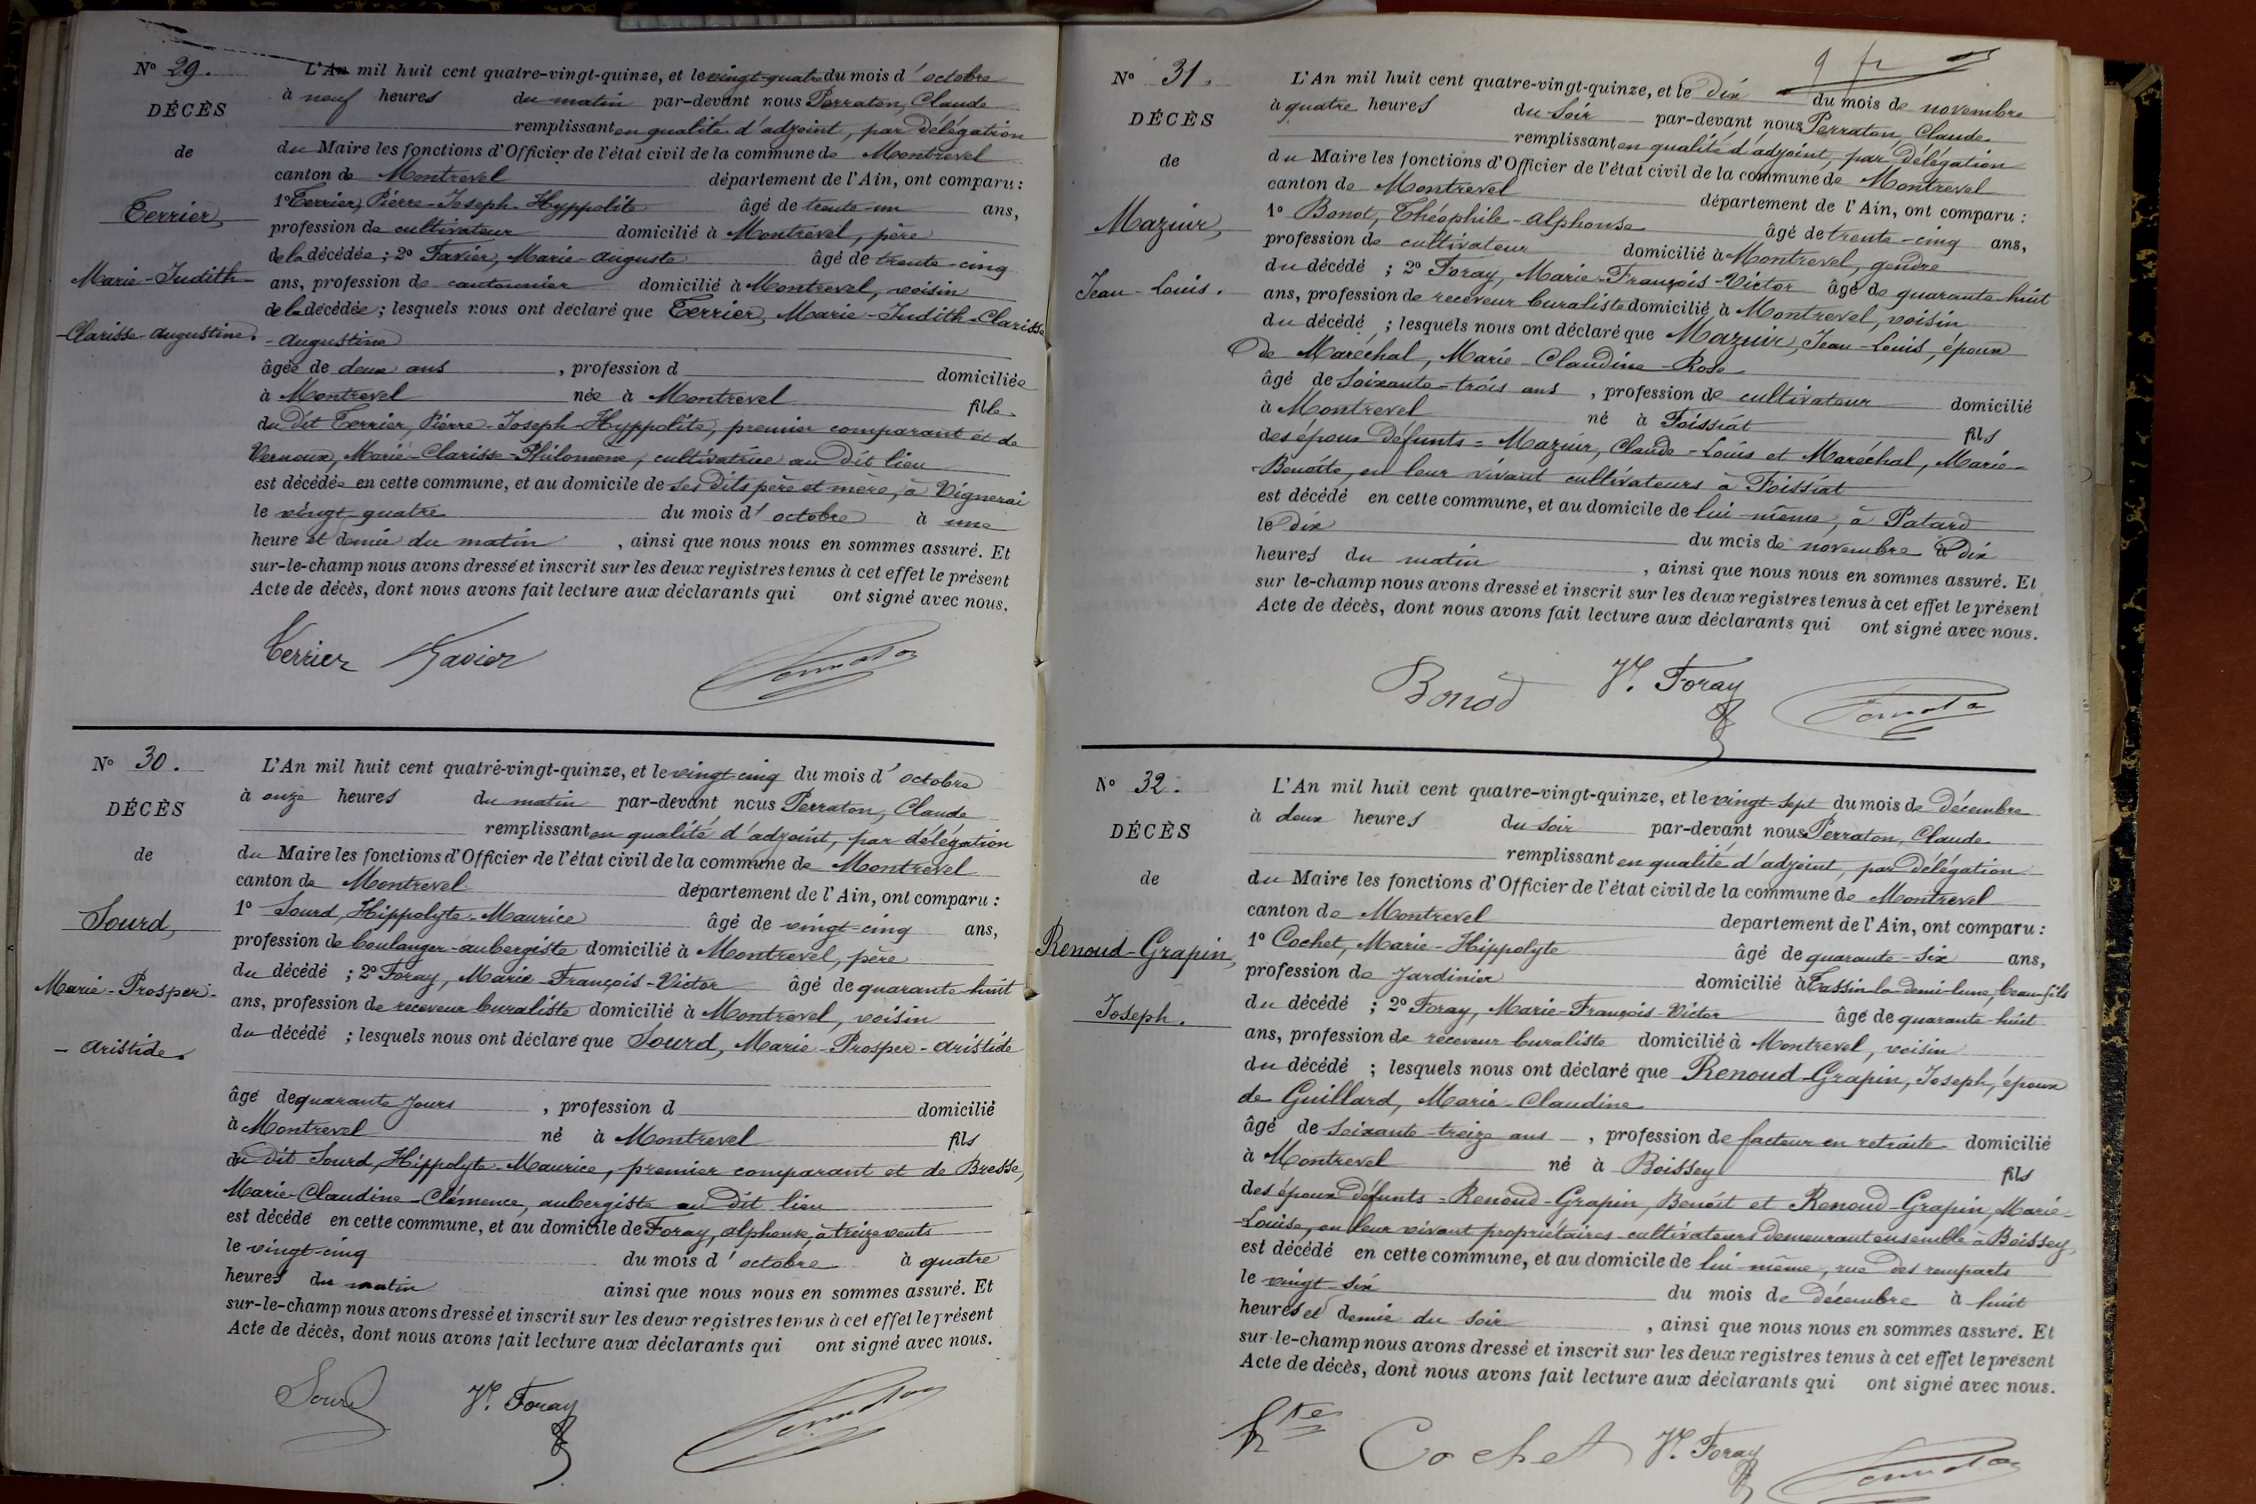 N° 29.
DÉCÈS
de
Terrier,
Marie-Judith-
-Clarisse-Augustine.
L'An mil huit cent quatre-vingt-quinze, et le vingt-quatre du mois d'octobre
à neuf heures du matin par-devant nous Perraton, Claude
remplissant en qualité d'adjoint, par délégation
du Maire les fonctions d'Officier de l'état civil de la commune de Montrevel
canton de Montrevel département de l'Ain, ont comparu :
1° Terrier, Pierre-Joseph-Hyppolite âgé de trente-un ans,
profession de cultivateur domicilié à Montrevel, père
de la décédée ; 2° Favier, Marie-Auguste âgé de trente-cinq
ans, profession de cantonnier domicilié à Montrevel, voisin
de la décédée ; lesquels nous ont déclaré que Terrier, Marie-Judith-Clarisse
-Augustine
âgée de deux ans, profession d domiciliée
à Montrevel née à Montrevel fille
du dit Terrier, Pierre-Joseph-Hyppolite, premier comparant et de
Vernoux, Marie-Clarisse-Philomène, cultivatrice au dit lieu
est décédée en cette commune, et au domicile de ses dits père et mère, à Vignerai
le vingt-quatre du mois d'octobre à une
heure et demie du matin, ainsi que nous nous en sommes assuré. Et
sur-le-champ nous avons dressé et inscrit sur les deux registres tenus à cet effet le présent
Acte de décès, dont nous avons fait lecture aux déclarants qui ont signé avec nous.
Terrier Favier Perraton
N° 30.
DÉCÈS
de
Sourd,
Marie-Prosper-
-Aristide.
L'An mil huit cent quatre-vingt-quinze, et le vingt-cinq du mois d'octobre
à onze heures du matin par-devant nous Perraton, Claude
remplissant en qualité d'adjoint, par délégation
du Maire les fonctions d'Officier de l'état civil de la commune de Montrevel
canton de Montrevel département de l'Ain, ont comparu :
1° Sourd, Hippolyte-Maurice âgé de vingt-cinq ans,
profession de boulanger-aubergiste domicilié à Montrevel, père
du décédé ; 2° Foray, Marie François-Victor âgé de quarante-huit
ans, profession de receveur buraliste domicilié à Montrevel, voisin
du décédé ; lesquels nous ont déclaré que Sourd, Marie-Prosper-Aristide
âgé de quarante jours, profession d domicilié
à Montrevel né à Montrevel fils
du dit Sourd, Hippolyte-Maurice, premier comparant et de Bresse,
Marie-Claudine-Clémence, aubergiste au dit lieu
est décédé en cette commune, et au domicile de Foray, Alphonse, à treize vents
le vingt-cinq du mois d'octobre à quatre
heures du matin ainsi que nous nous en sommes assuré. Et
sur-le-champ nous avons dressé et inscrit sur les deux registres tenus à cet effet le présent
Acte de décès, dont nous avons fait lecture aux déclarants qui ont signé avec nous.
Sourd Vr. Foray Perraton
N° 31.
DÉCÈS
de
Mazuir,
Jean-Louis.
L'An mil huit cent quatre-vingt-quinze, et le dix du mois de novembre
à quatre heures du soir par-devant nous Perraton, Claude
remplissant en qualité d'adjoint, par délégation
du Maire les fonctions d'Officier de l'état civil de la commune de Montrevel
canton de Montrevel département de l'Ain, ont comparu :
1° Bonot, Théophile-Alphonse âgé de trente-cinq ans,
profession de cultivateur domicilié à Montrevel, gendre
du décédé ; 2° Foray, Marie-François-Victor âgé de quarante-huit
ans, profession de receveur buraliste domicilié à Montrevel, voisin
du décédé ; lesquels nous ont déclaré que Mazuir, Jean-Louis, époux
de Maréchal, Marie-Claudine-Rose
âgé de soixante-trois ans, profession de cultivateur domicilié
à Montrevel né à Foissiat fils
des époux défunts = Mazuir, Claude-Louis et Maréchal, Marie-
-Benoîte, en leur vivant cultivateurs à Foissiat
est décédé en cette commune, et au domicile de lui-même, à Patard
le dix du mois de novembre à dix
heures du matin, ainsi que nous nous en sommes assuré. Et
sur le-champ nous avons dressé et inscrit sur les deux registres tenus à cet effet le présent
Acte de décès, dont nous avons fait lecture aux déclarants qui ont signé avec nous.
Bonod Vr. Foray Perraton
N° 32.
DÉCÈS
de
Renoud-Grapin,
Joseph.
L'An mil huit cent quatre-vingt-quinze, et le vingt-sept du mois de décembre
à deux heures du soir par-devant nous Perraton, Claude
remplissant en qualité d'adjoint, par délégation
du Maire les fonctions d'Officier de l'état civil de la commune de Montrevel
canton de Montrevel departement de l'Ain, ont comparu :
1° Cochet, Marie-Hippolyte âgé de quarante-six ans,
profession de Jardinier domicilié à Tassin-la-demi-lune, beau-fils
du décédé ; 2° Foray, Marie-François-Victor âgé de quarante-huit
ans, profession de receveur buraliste domicilié à Montrevel, voisin
du décédé ; lesquels nous ont déclaré que Renoud-Grapin, Joseph, époux
de Guillard, Marie-Claudine
âgé de soixante-treize ans, profession de facteur en retraite domicilié
à Montrevel né à Boissey fils
des époux défunts = Renoud-Grapin, Benoît et Renoud-Grapin, Marie-
-Louise, en leur vivant propriétaires-cultivateurs demeurant ensemble à Boissey,
est décédé en cette commune, et au domicile de lui-même, rue des remparts
le vingt-six du mois de décembre à huit
heures et demie du soir, ainsi que nous nous en sommes assuré. Et
sur-le-champ nous avons dressé et inscrit sur les deux registres tenus à cet effet le présent
Acte de décès, dont nous avons fait lecture aux déclarants qui ont signé avec nous.
Cochet Vr. Foray Perraton